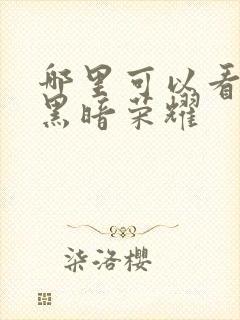 哪里可以看
黑暗荣耀
柒洛樱